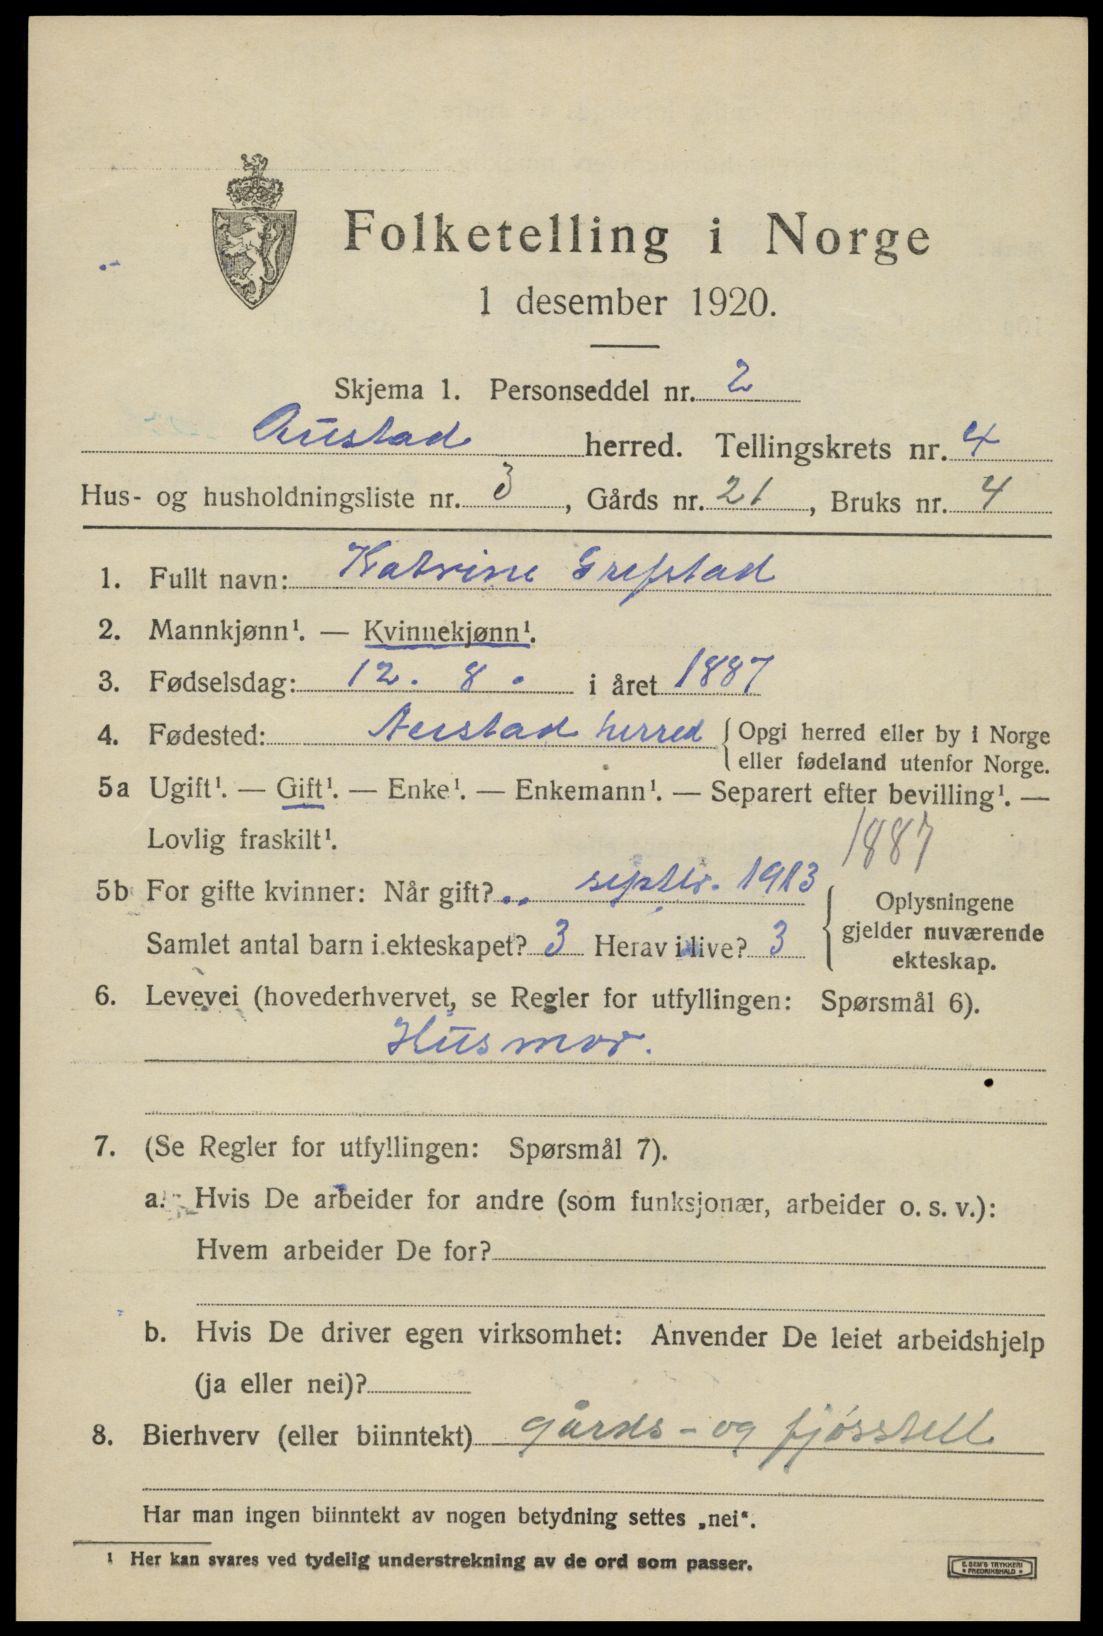 Folketelling i Norge
1 desember 1920.
Skjema 1. Personseddel nr. 2
Austad herred. Tellingskrets nr. 4
Hus- og husholdningsliste nr. 3, Gårds nr. 21, Bruks nr. 4
1. Fullt navn: Katrine Grefstad
2. Mannkjønn¹. — Kvinnekjønn¹.
3. Fødselsdag: 12. 8. i året 1887
4. Fødested: Austad herred { Opgi herred eller by i Norge
eller fødeland utenfor Norge.
5a Ugift¹. — Gift¹. — Enke¹. — Enkemann¹. — Separert efter bevilling¹. —
Lovlig fraskilt¹.
1887
5b For gifte kvinner: Når gift? septbr. 1913
Samlet antal barn i ekteskapet? 3 Herav i live? 3
{ Oplysningene
gjelder nuværende
ekteskap.
6. Levevei (hovederhvervet, se Regler for utfyllingen: Spørsmål 6).
Husmor.
7. (Se Regler for utfyllingen: Spørsmål 7).
a. Hvis De arbeider for andre (som funksjonær, arbeider o. s. v.):
Hvem arbeider De for?
b. Hvis De driver egen virksomhet: Anvender De leiet arbeidshjelp
(ja eller nei)?
8. Bierhverv (eller biinntekt) gårds- og fjósstell
Har man ingen biinntekt av nogen betydning settes „nei“.
¹ Her kan svares ved tydelig understrekning av de ord som passer.
E. SEM'S TRYKKERI
FREDRIKSHALD